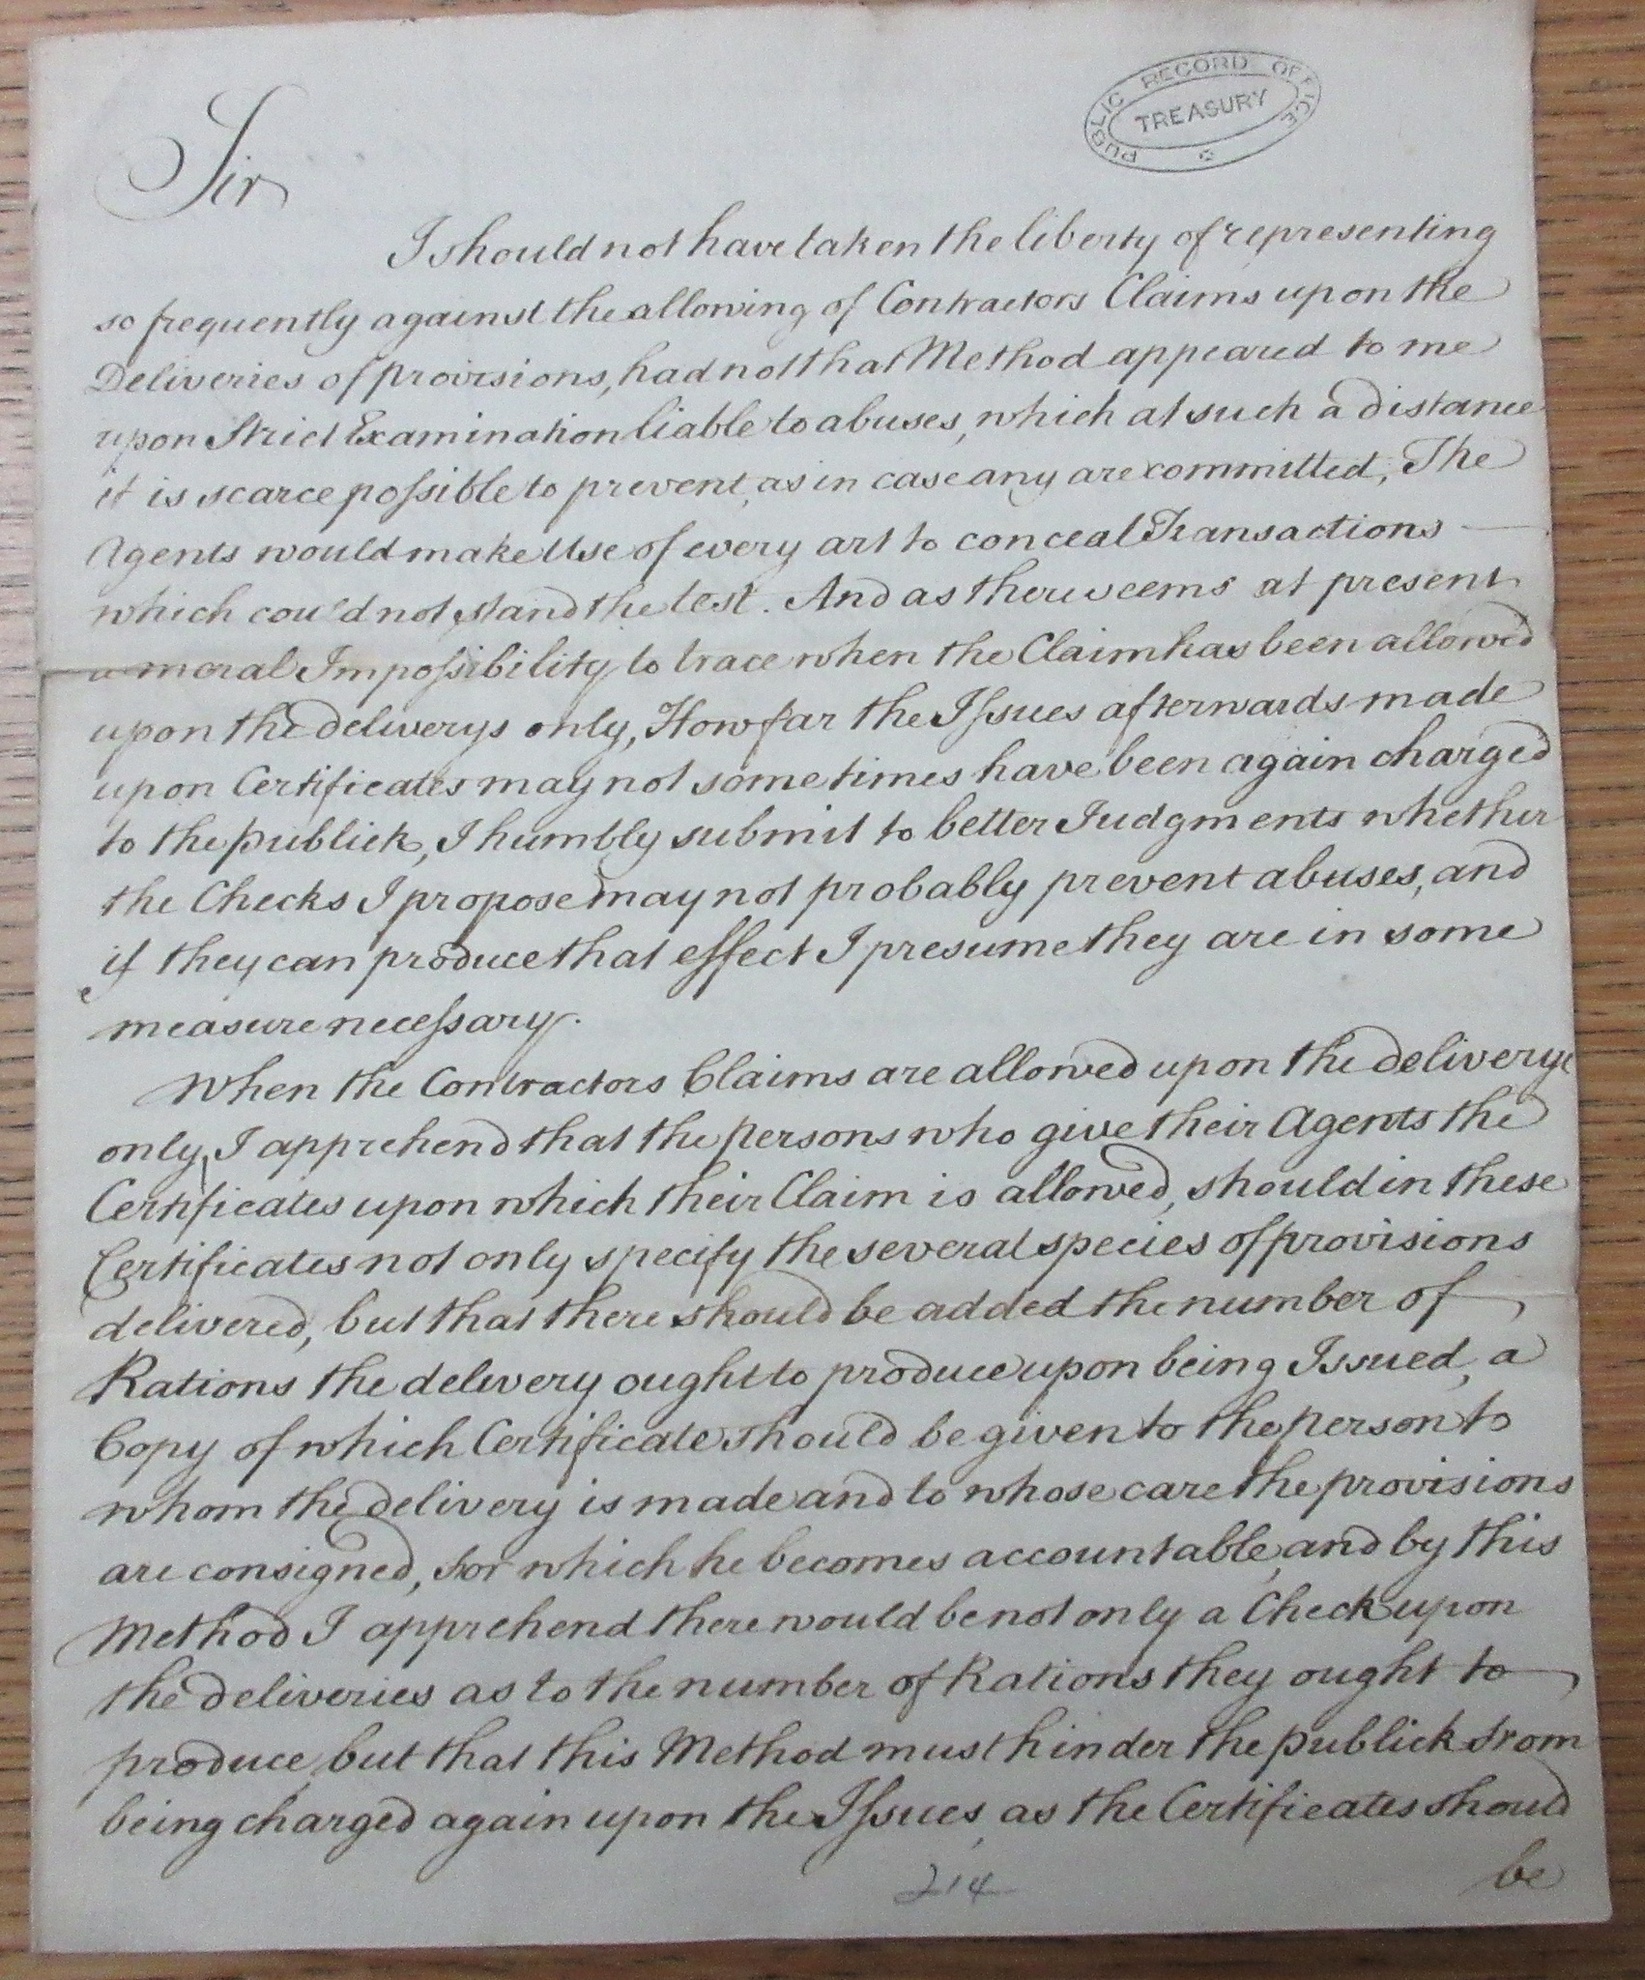 PUBLIC RECORD OFFICE
TREASURY
Sir
I should not have taken the liberty of representing
so frequently against the allowing of Contractors Claims upon the
Deliveries of provisions, had not that Method appeared to me
upon Strict Examination liable to abuses, which at such a distance
it is scarce possible to prevent, as in case any are committed, The
Agents would make Use of every art to conceal Transactions
which could not stand the test. And as there seems at present
a moral Impossibility to trace when the Claim has been allowed
upon the deliverys only, How far the Issues afterwards made
upon Certificates may not sometimes have been again charged
to the publick, I humbly submit to better Judgments whether
the Checks I propose may not probably prevent abuses, and
if they can produce that effect I presume they are in some
measure necessary.
When the Contractors Claims are allowed upon the deliverys
only, I apprehend that the persons who give their Agents the
Certificates upon which their Claim is allowed, should in these
Certificates not only specify the several species of provisions
delivered, but that there should be added the number of
Rations the delivery ought to produce upon being Issued, a
Copy of which Certificate should be given to the person to
whom the delivery is made and to whose care the provisions
are consigned, for which he becomes accountable, and by this
Method I apprehend there would be not only a Check upon
the deliveries as to the number of Rations they ought to
produce, but that this Method must hinder the publick from
being charged again upon the Issues, as the Certificates should
be
214